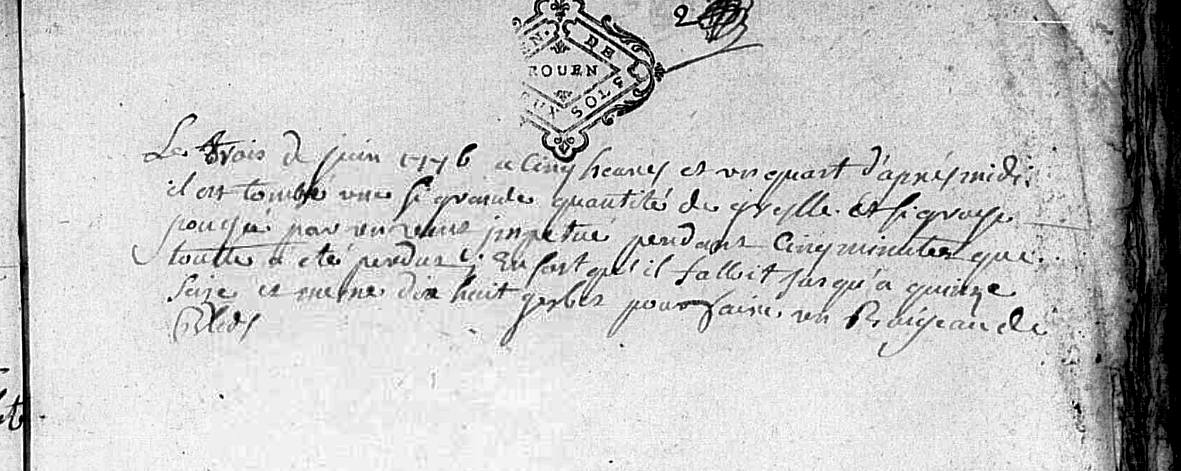 2
EN. DE
ROUEN
UX SOLS
Le trois de juin 1776 a Cinq heures et un quart d'aprés midi
il est tombé une si grande quantité de gresle et si grosse
poussé par un vent impetué pendant Cinq minutes que
toutte a eté perdus Ensort qu'il falloit jusqu'a quinze
Saize et meme dix huit gerbes pour faire un Boisseau de
Bleds